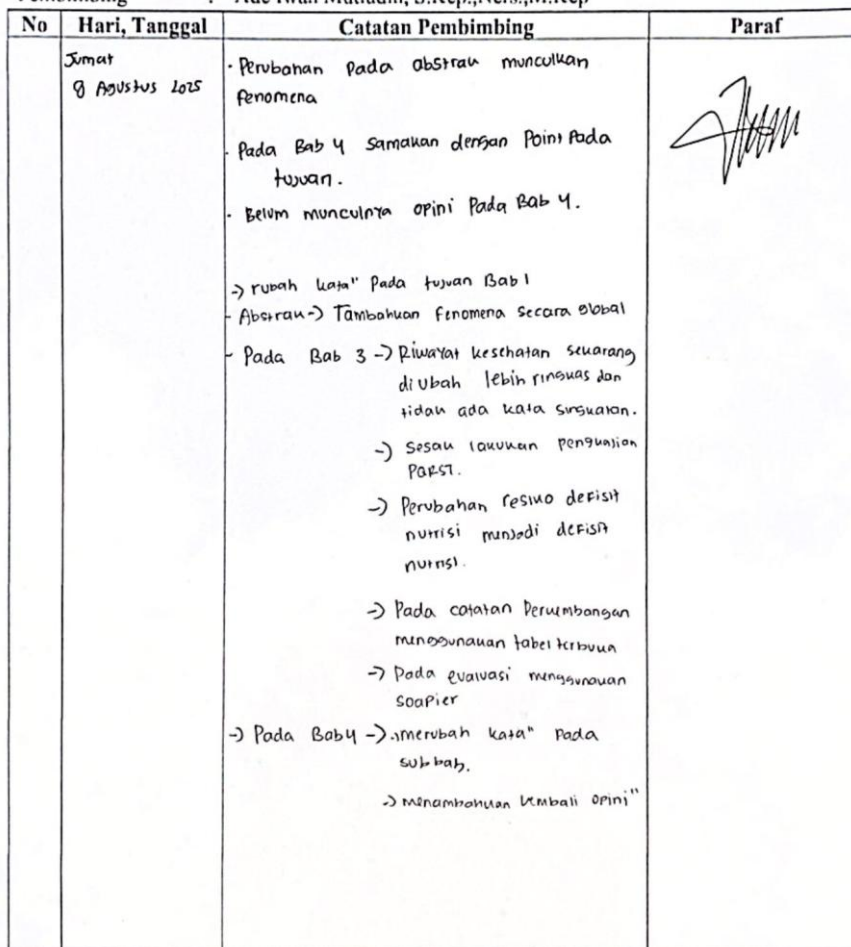 No Hari, Tanggal Catatan Pembimbing Paraf
Jumat
8 Agustus 2025
· Perubahan Pada abstrak munculkan
fenomena
· Pada Bab 4 samakan dengan Point Pada
tujuan.
· Belum munculnya opini Pada Bab 4.
-> rubah kata" Pada tujuan Bab 1
- Abstrak -> Tambahkan fenomena secara global
- Pada Bab 3 -> Riwayat kesehatan sekarang
di ubah lebih ringkas dan
tidak ada kata singkatan.
-> Sesak lakukan pengkajian
PQRST.
-> Perubahan resiko defisit
nutrisi menjadi defisit
nutrisi.
-> Pada catatan Perkembangan
menggunakan tabel terbuka
-> Pada evaluasi menggunakan
soapier
-> Pada Bab 4 -> merubah kata" Pada
sub bab.
-> menambahkan kembali opini"